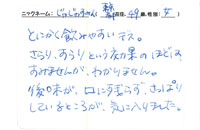 ニックネーム: じゅじゅのすけさん 東京都 在住, 49歳, 性別( 女 )
とにかく飲みやすいデス。
さらり、すらりという効果のほどは
すみませんが、わかりません。
後味が、口にすぎらず、さっぱり
しているところが、気に入りました。